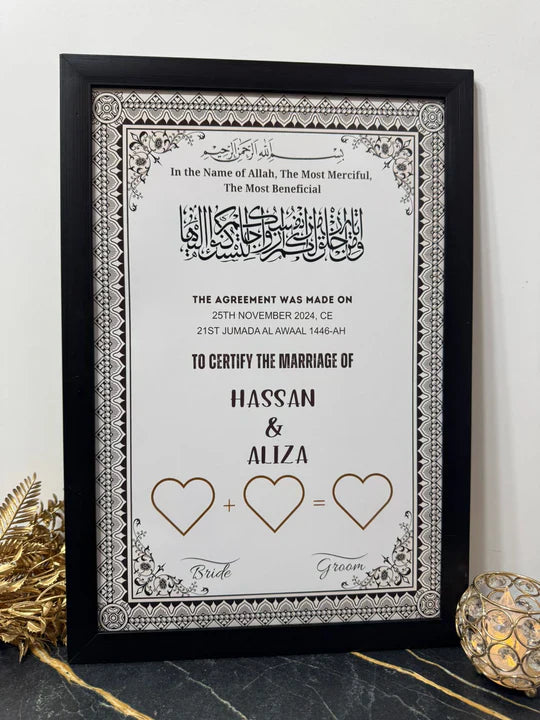 بسم الله الرحمن الرحيم
In the Name of Allah, The Most Merciful,
The Most Beneficial
THE AGREEMENT WAS MADE ON
25TH NOVEMBER 2024, CE
21ST JUMADA AL AWAAL 1446-AH
TO CERTIFY THE MARRIAGE OF
HASSAN
&
ALIZA
+ =
Bride Groom